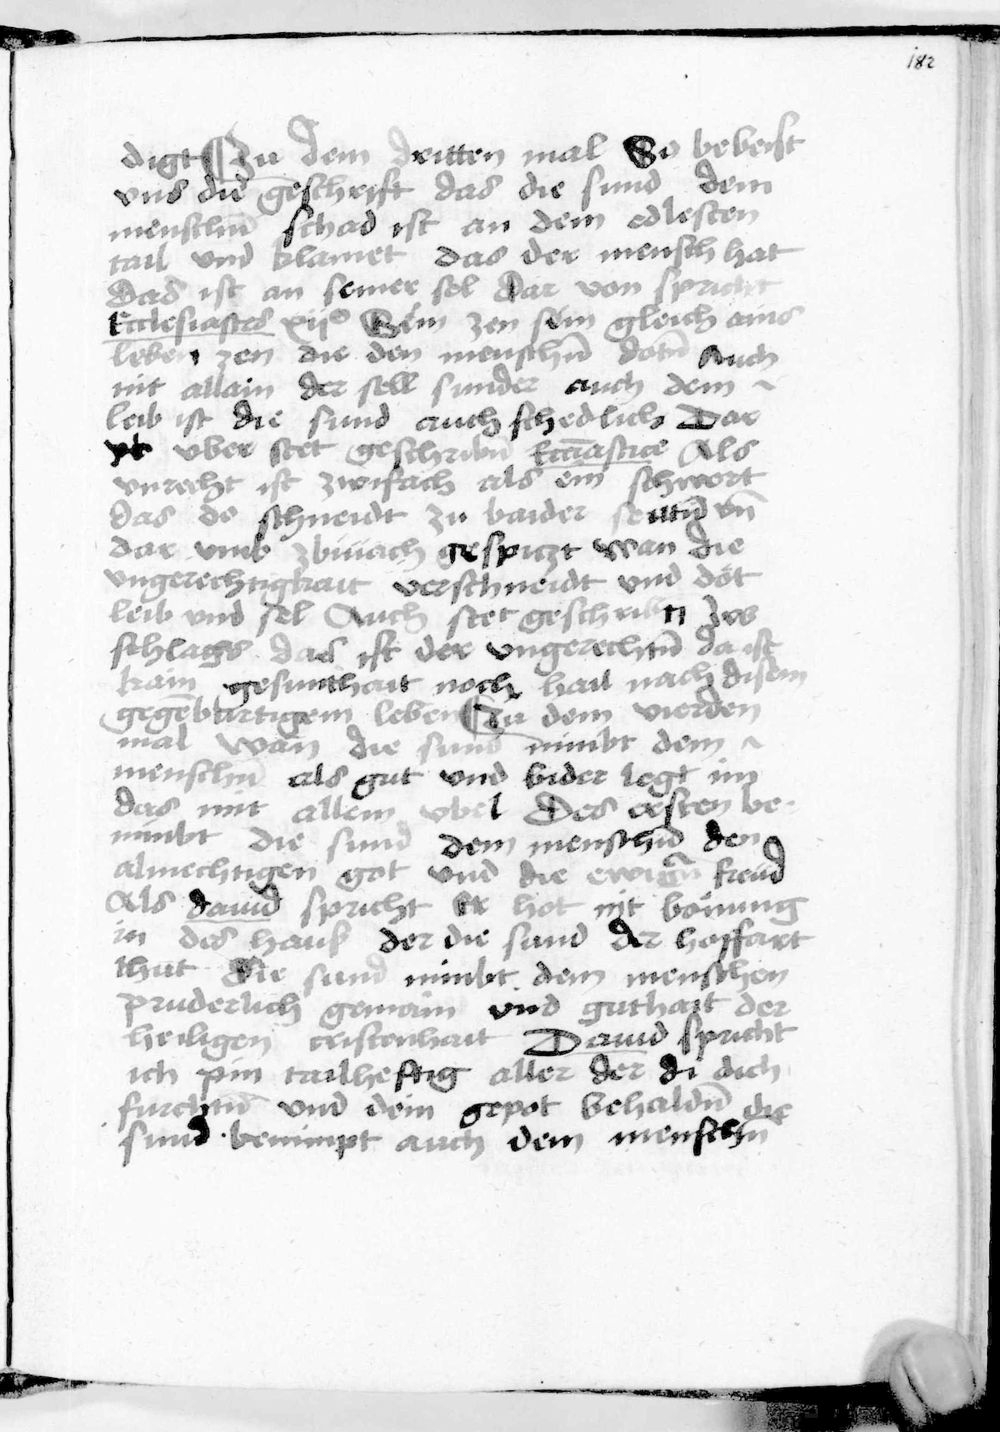 182
digt Czu dem dritten mal So beveist
vns die geschrift das die sund dem
menschn̄ schad ist an dem edlesten
tail vnd klainet das der mensch hat
das ist an seiner sel Dar von spricht
Ecclesiastes xijº Sein zen sein gleich ains
leben zen die den menschn̄ dotn̄ Auch
nit allain der sell sunder auch dem
leib ist die sund auch schedlich Dar
vber stet geschribn̄ Ecc̄iastice Als
vnrecht ist zwifach als ein schwert
das do schneidt zu baider seittn̄ vn̄
dar vmb zbiuach gespitzt wan die
vngerechtigkait verschneidt vnd döt
leib vnd sel Auch stet geschribn
schlags das ist der vngerechtn̄ da ist
kain gesunthait noch hail nach disem
gegēbürtigem leben Czu dem vierden
mal wan die sund nimbt dem
menschn̄ als gut vnd bider legt im
das mit allem vbel Des ersten be
nimbt die sund dem menschn̄ den
almechtigen got vnd die ewign̄ freüd
Als dauid spricht Er hot nit bonung
in des hauß der die sund der hoffart
thut Die sund nimbt dem menschen
pruderlich gemain vnd guthait der
heiligen cristenhait Dauid spricht
ich pin tailheftig aller der di dich
furchtn̄ vnd dein gepot behaldn̄ die
sund benimpt auch dem menschn̄